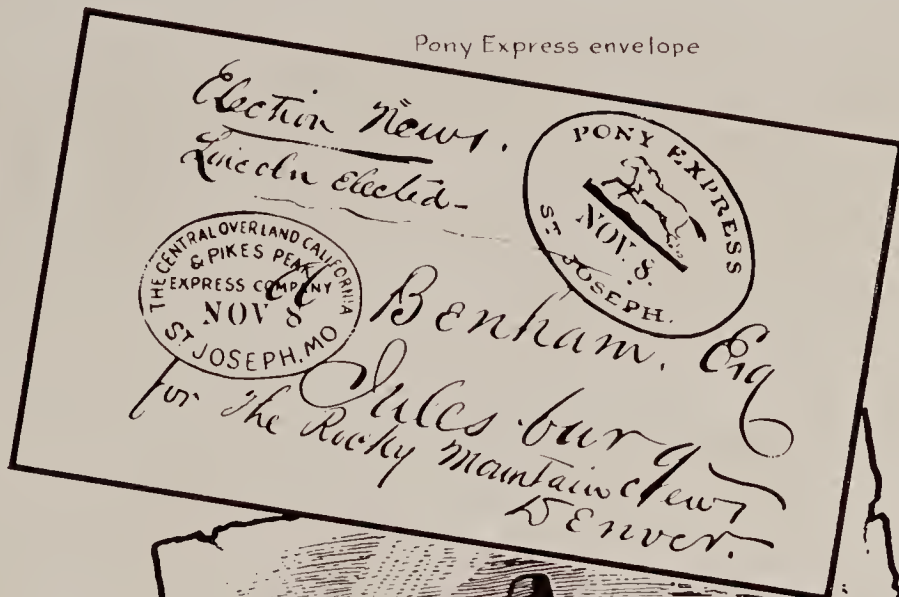 Pony Express envelope
Election News.
Lincoln Elected-
PONY EXPRESS
NOV. 8.
ST JOSEPH.
THE CENTRAL OVERLAND CALIFORNIA
& PIKES PEAK
EXPRESS COMPANY
NOV 8
ST JOSEPH, MO
Benham. Esq
Julesburg
for The Rocky Mountain News
Denver.